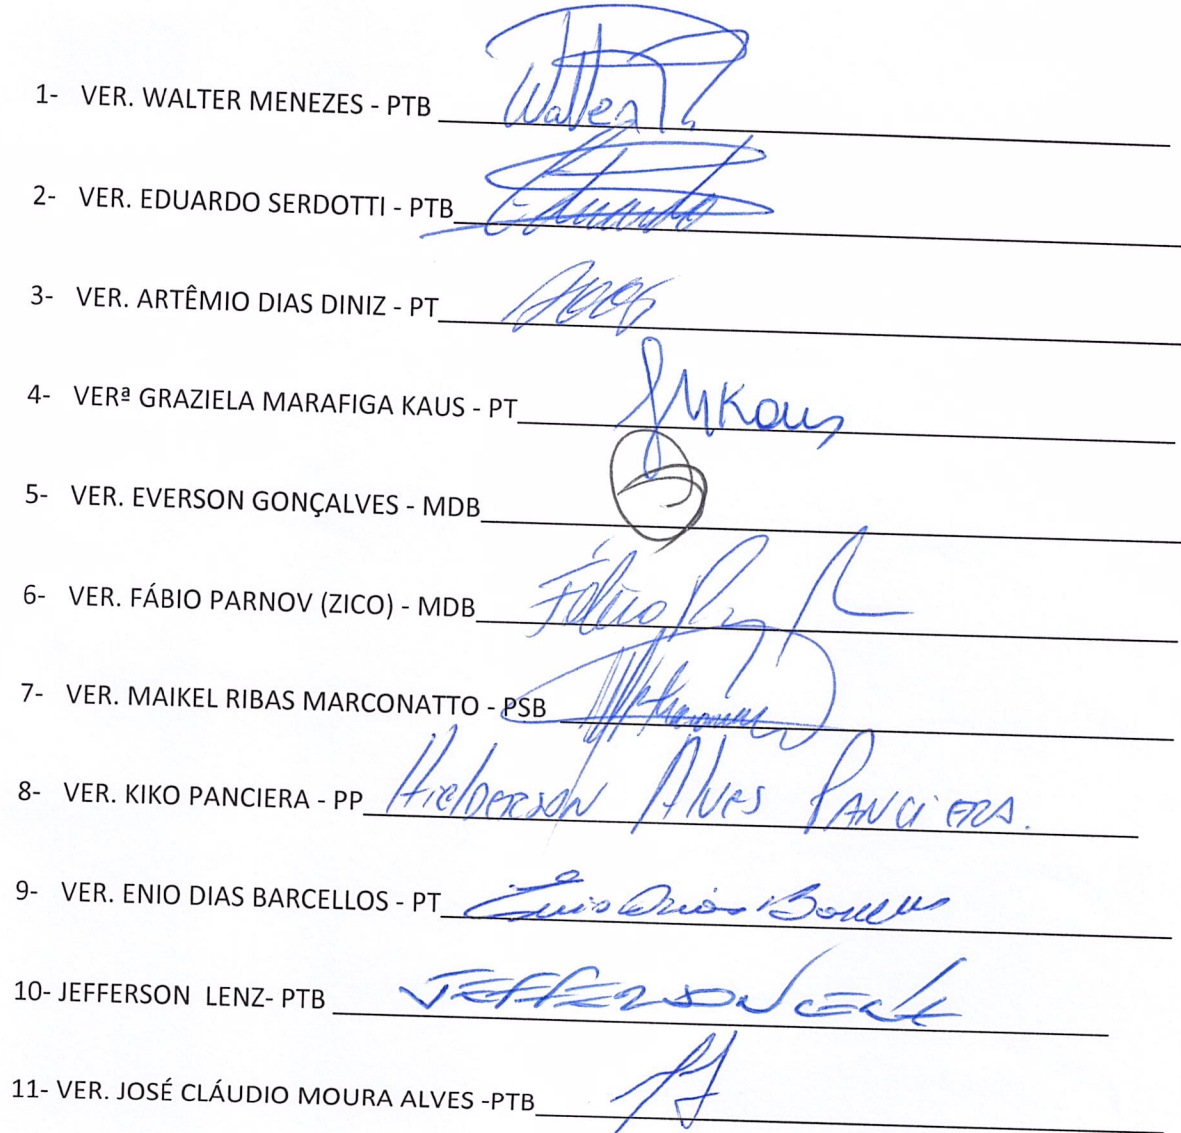 1- VER. WALTER MENEZES - PTB Walter
2- VER. EDUARDO SERDOTTI - PTB Eduardo
3- VER. ARTÊMIO DIAS DINIZ - PT
4- VERª GRAZIELA MARAFIGA KAUS - PT GMKaus
5- VER. EVERSON GONÇALVES - MDB
6- VER. FÁBIO PARNOV (ZICO) - MDB Fábio
7- VER. MAIKEL RIBAS MARCONATTO - PSB
8- VER. KIKO PANCIERA - PP Hielderson Alves Panciera.
9- VER. ENIO DIAS BARCELLOS - PT Enio Dias
10- JEFFERSON LENZ- PTB JEFFERSON LENZ
11- VER. JOSÉ CLÁUDIO MOURA ALVES -PTB